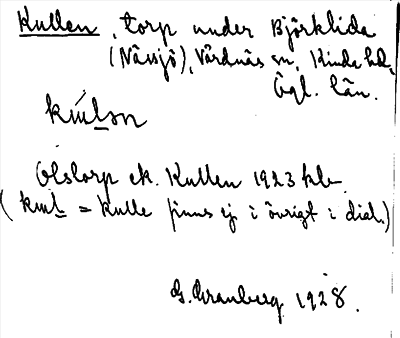 Kullen, torp under Björklida
(Nässjö), Vårdnäs sn, Kinda hd,
Ögl. län.
Olstorp ek. Kullen 1923 hbr.
( = kulle finns ej i övrigt i dial.)
G. Granberg 1928.